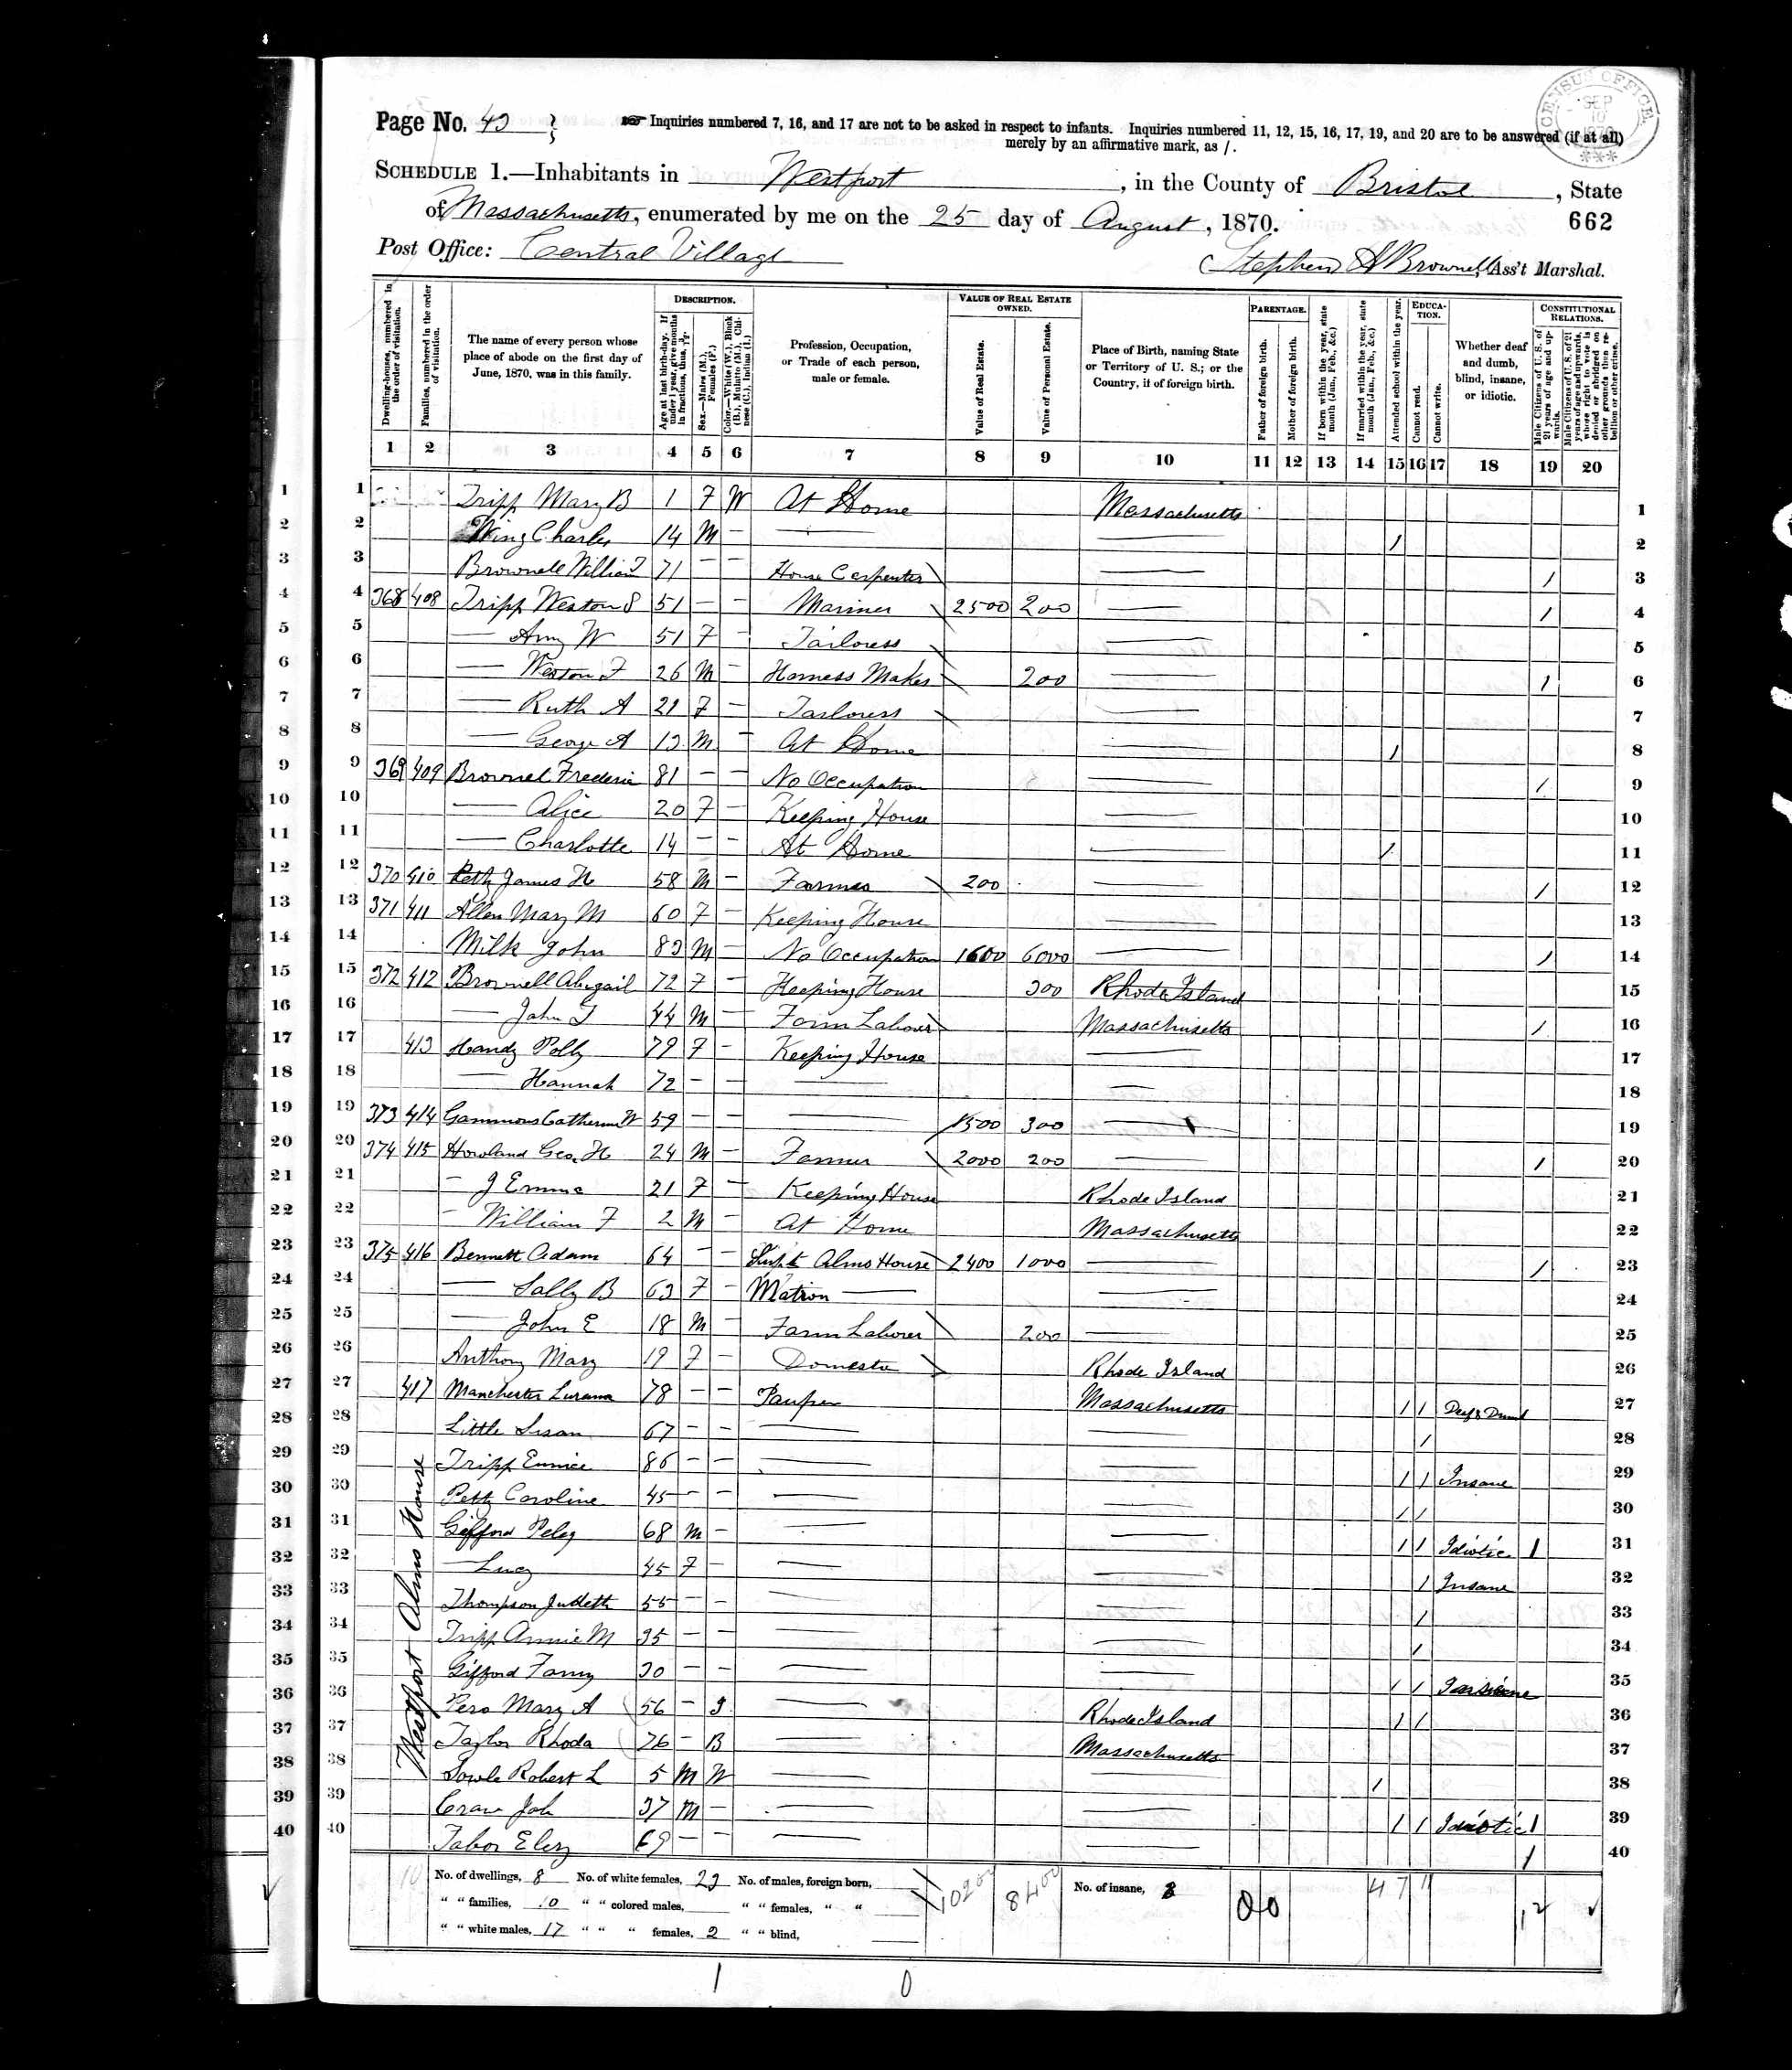 CENSUS OFFICE SEP 10 1870
Page No. 43
Inquiries numbered 7, 16, and 17 are not to be asked in respect to infants. Inquiries numbered 11, 12, 15, 16, 17, 19, and 20 are to be answered (if at all)
merely by an affirmative mark, as /.
SCHEDULE 1.—Inhabitants in Westport, in the County of Bristol, State
of Massachusetts, enumerated by me on the 25 day of August, 1870.
662
Post Office: Central Village
Stephen A Brownell, Ass't Marshal.
Dwelling-houses, numbered in the order of visitation.
Families, numbered in the order of visitation.
The name of every person whose place of abode on the first day of June, 1870, was in this family.
DESCRIPTION.
Age at last birth-day. If under 1 year, give months in fractions, thus, 3/12.
Sex.—Males (M.), Females (F.)
Color.—White (W.), Black (B.), Mulatto (M.), Chinese (C.), Indian (I.)
Profession, Occupation, or Trade of each person, male or female.
VALUE OF REAL ESTATE OWNED.
Value of Real Estate.
Value of Personal Estate.
Place of Birth, naming State or Territory of U. S.; or the Country, if of foreign birth.
PARENTAGE.
Father of foreign birth.
Mother of foreign birth.
If born within the year, state month (Jan., Feb., &c.)
If married within the year, state month (Jan., Feb., &c.)
Attended school within the year.
EDUCATION.
Cannot read.
Cannot write.
Whether deaf and dumb, blind, insane, or idiotic.
CONSTITUTIONAL RELATIONS.
Male Citizens of U. S. of 21 years of age and upwards.
Male Citizens of U. S. of 21 years of age and upwards, whose right to vote is denied or abridged on other grounds than rebellion or other crime.
1 2 3 4 5 6 7 8 9 10 11 12 13 14 15 16 17 18 19 20
1 Tripp Mary B 1 F W At Home Massachusetts 1
2 Wing Charles 14 M — — — / 2
3 Brownell William T 71 — — House Carpenter — / 3
4 368 408 Tripp Weston S 51 — — Mariner 2500 200 — / 4
5 — Amy W 51 F — Tailoress — 5
6 — Weston F 26 M — Harness Maker 200 — / 6
7 — Ruth A 21 F — Tailoress — 7
8 — George A 13 M — At Home — / 8
9 369 409 Brownel Frederic 81 — — No Occupation — / 9
10 — Alice 20 F — Keeping House — 10
11 — Charlotte 14 — — At Home — / 11
12 370 410 Petty James H 58 M — Farmer 200 — / 12
13 371 411 Allen Mary M 60 F — Keeping House — 13
14 Milk John 83 M — No Occupation 1600 6000 — / 14
15 372 412 Brownell Abigail 72 F — Keeping House 300 Rhode Island 15
16 — John T 44 M — Farm Laborer Massachusetts / 16
17 413 Handy Polly 79 F — Keeping House — 17
18 — Hannah 72 — — — — 18
19 373 414 Gammons Catherine W 59 — — — 1500 300 — 19
20 374 415 Howland Geo. H 24 M — Farmer 2000 200 — / 20
21 — J Emma 21 F — Keeping House Rhode Island 21
22 — William F 2 M — At Home Massachusetts 22
23 375 416 Bennett Adam 64 — — Supt Alms House 2400 1000 — / 23
24 — Sally B 63 F — Matron — — 24
25 — John E 18 M — Farm Laborer 200 — 25
26 Anthony Mary 19 F — Domestic Rhode Island 26
27 417 Manchester Lurana 78 — — Pauper Massachusetts / / Deaf & Dumb 27
28 Little Susan 67 — — — — / 28
29 Tripp Eunice 86 — — — — / / Insane 29
30 Petty Caroline 45 — — — — / / 30
31 Gifford Peleg 68 M — — — / / Idiotic / 31
32 — Lucy 45 F — — — / Insane 32
33 Thompson Judeth 55 — — — — / 33
34 Tripp Annie M 35 — — — — / 34
35 Gifford Fanny 30 — — — — / / Insane 35
36 Pero Mary A 56 — I — Rhode Island / / 36
37 Taylor Rhoda 76 — B — Massachusetts 37
38 Sowle Robert L 5 M W — — / 38
39 Job 37 M — — — / / Idiotic / 39
40 Tabor 69 — — — — / 40
Westport Alms House
No. of dwellings, 8 No. of white females, 23 No. of males, foreign born,
" " families, 10 " " colored males, " " females, " "
" " white males, 17 " " " females, 2 " " blind,
10200 8400
No. of insane, 3
0 0
4 7 11
12
1 0